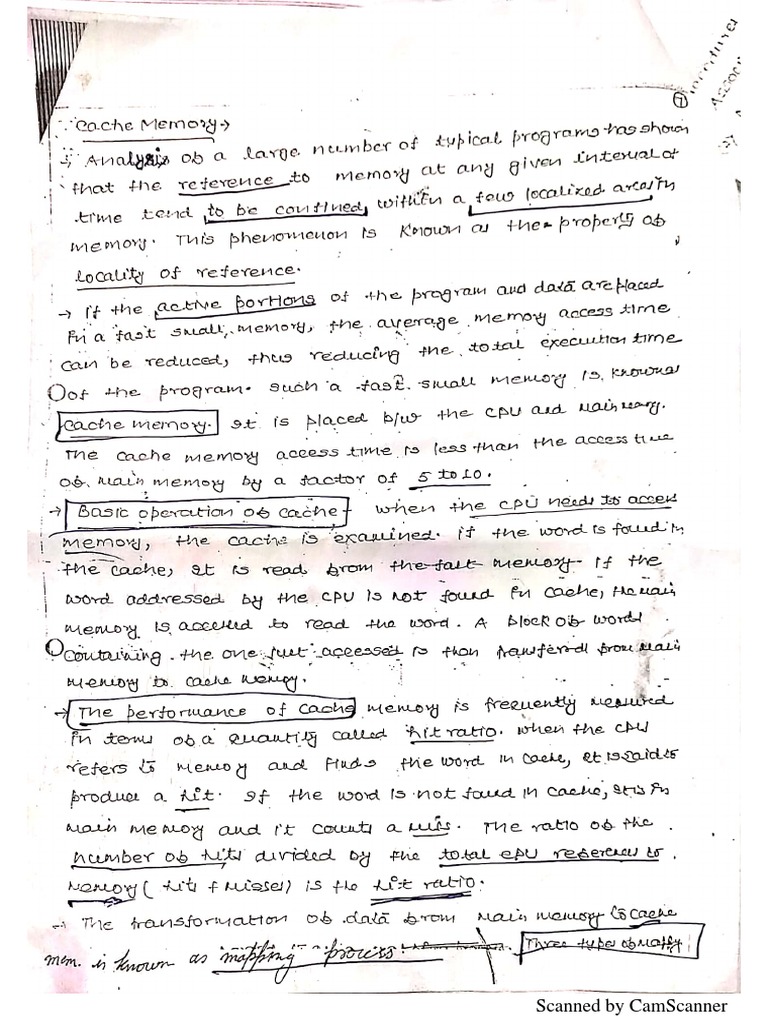 7
Cache Memory →
Analysis of a large number of typical programs has shown
that the reference to memory at any given interval of
time tend to be confined within a few localized areas in
memory. This phenomenon is known as the property of
locality of reference.
→ If the active portions of the program and data are placed
in a fast small memory, the average memory access time
can be reduced, thus reducing the total execution time
of the program. Such a fast small memory is known as
cache memory. It is placed b/w the CPU and main memory.
The cache memory access time is less than the access time
of main memory by a factor of 5 to 10.
→ Basic operation of cache - when the CPU needs to access
memory, the cache is examined. if the word is found in
the cache, it is read from the fast memory. If the
word addressed by the CPU is not found in cache, the main
memory is accessed to read the word. A block of words
containing the one just accessed is then transferred from main
memory to cache memory.
→ The performance of cache memory is frequently measured
in terms of a quantity called hit ratio. when the CPU
refers to memory and finds the word in cache, it is said to
produce a hit. If the word is not found in cache, it is in
main memory and it counts a miss. The ratio of the
number of hits divided by the total CPU references to
memory (hits + Misses) is the hit ratio.
→ The transformation of data from main memory to cache
mem. is known as mapping process. Three types of
Scanned by CamScanner